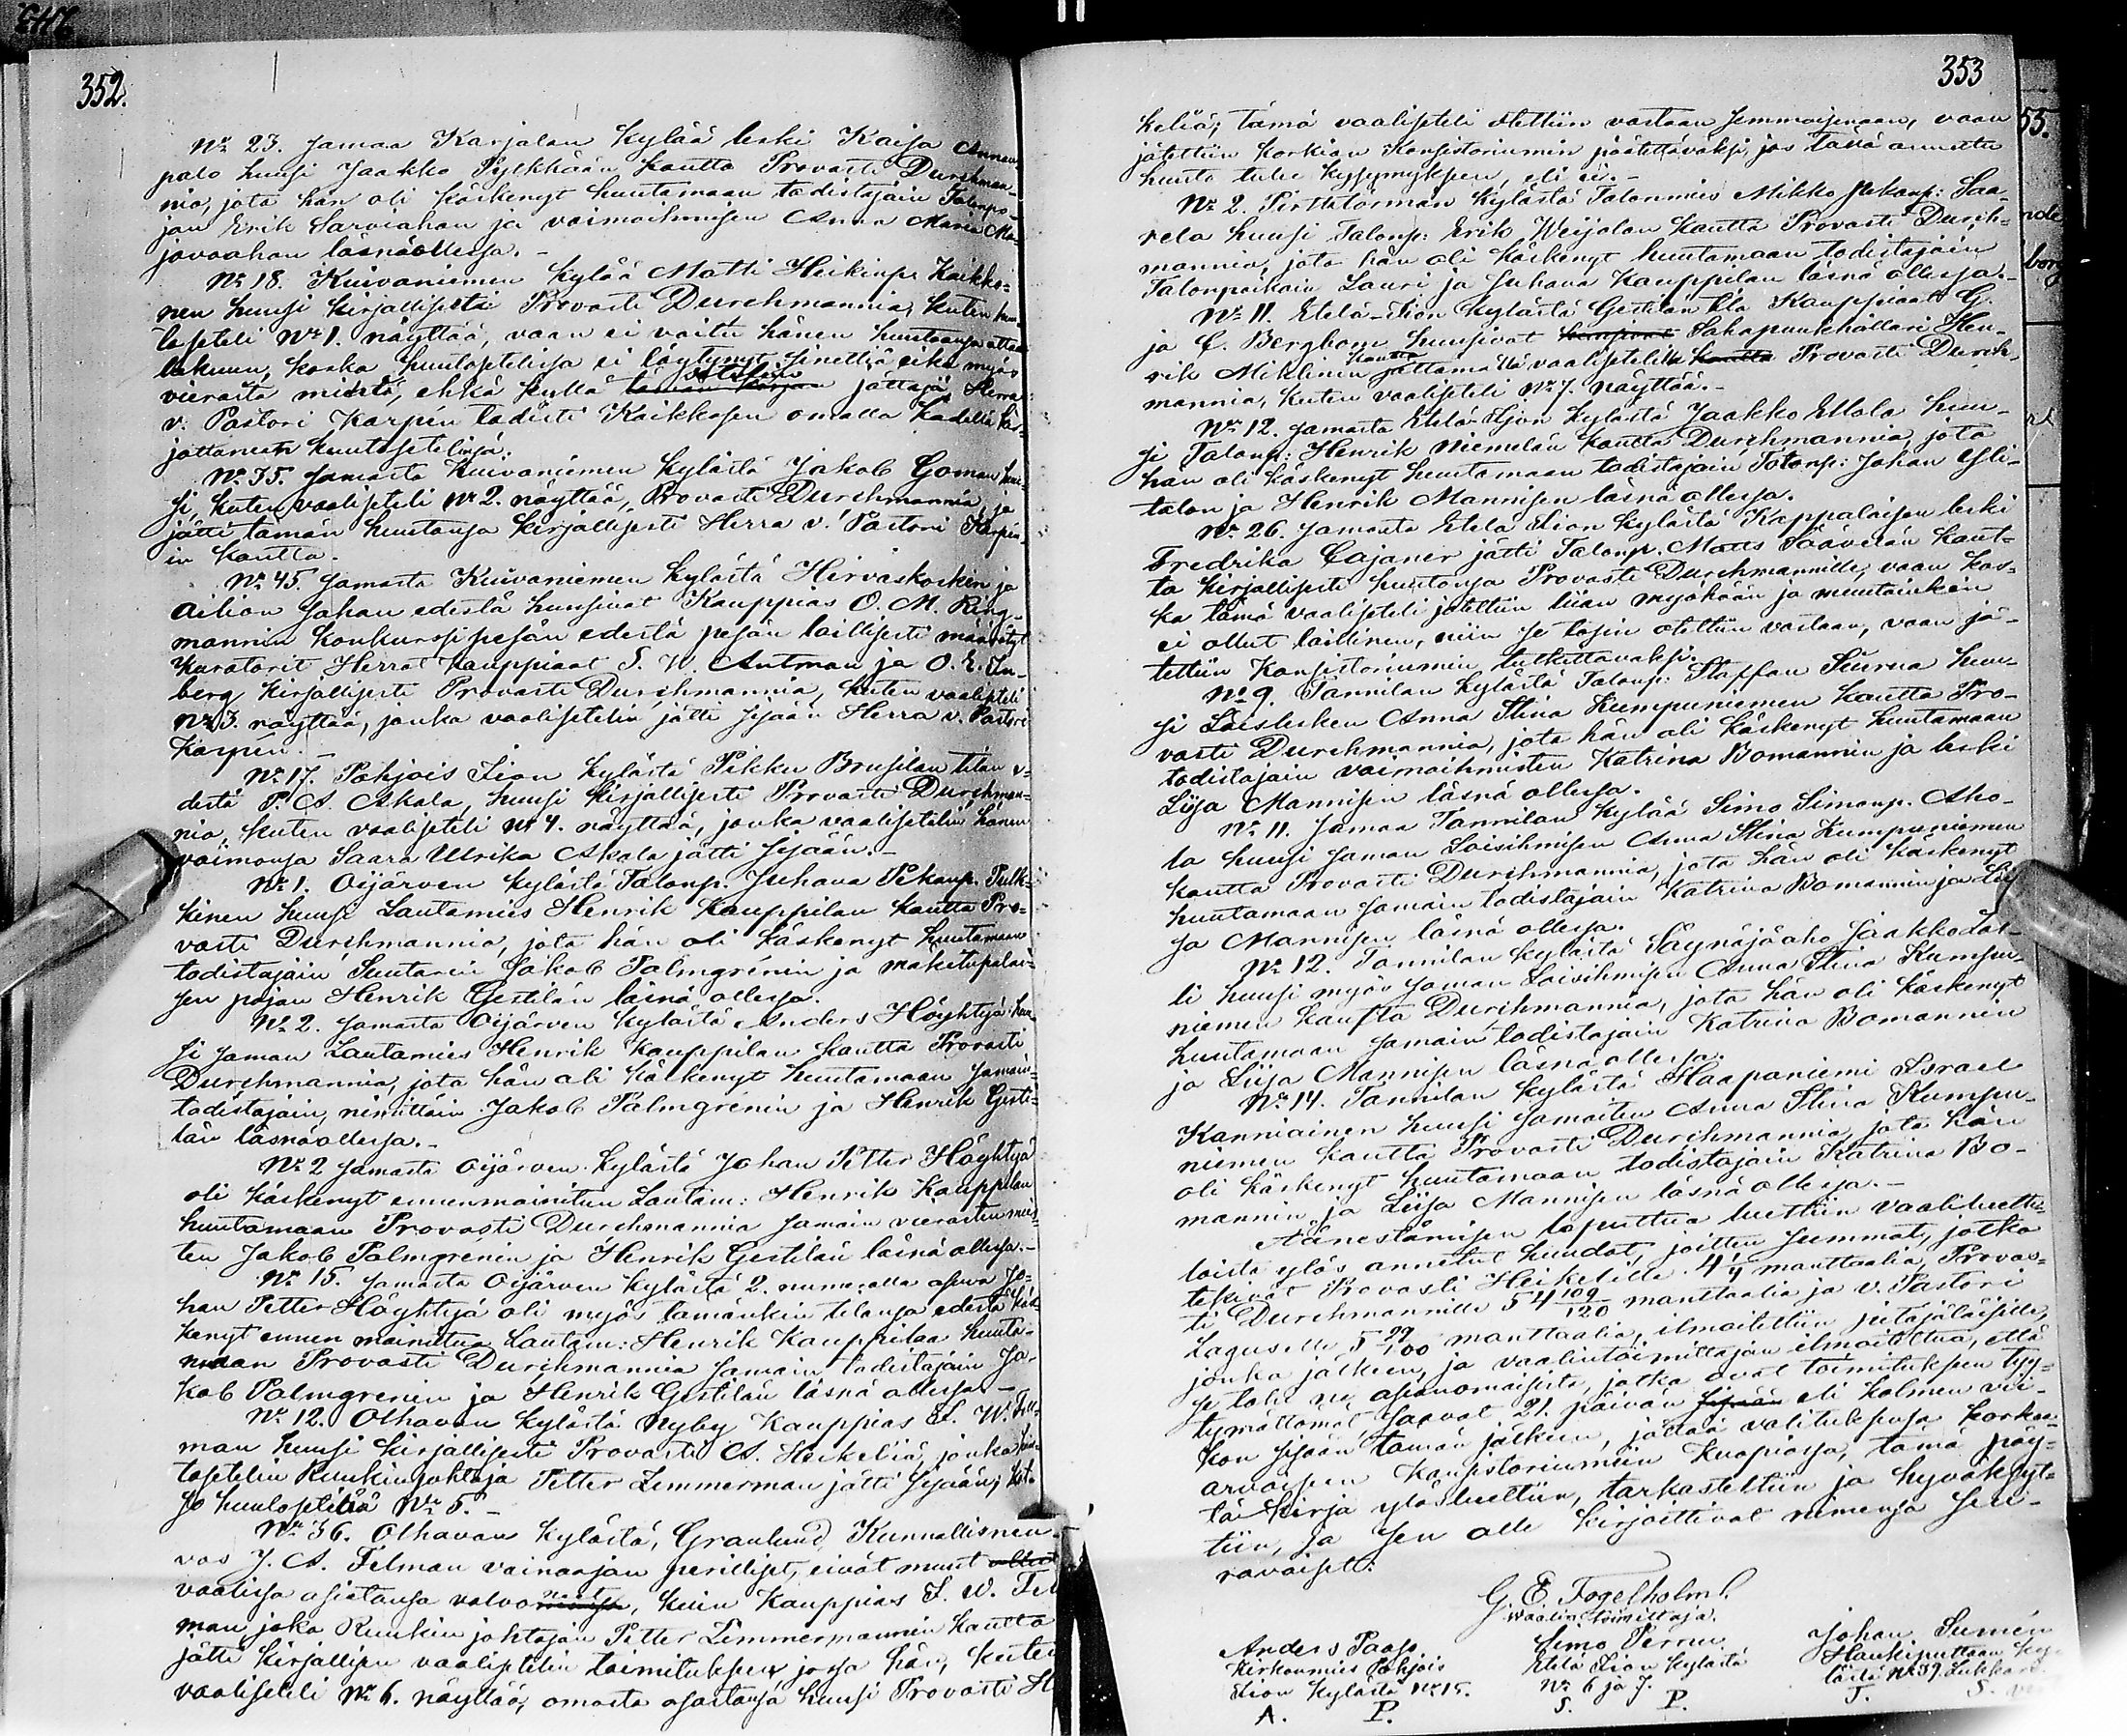 352.
No 23. Samaa Karjalan kylää leski Kaisa Annan-
palo huusi Jaakko Pylkhään kautta Provasti Durchman-
nia, jota hän oli käskenyt huutamaan todistajain Talonpo-
jan Erik Sarviahan ja vaimoihmisen Anna Maria
javaahan läsnäollessa. -
No 18. Kuivaniemen kylää Matti Heikinp. Kaikko-
nen huusi kirjallisesti Provasti Durchmannia, kuten huu-
toseteli No 1. näyttää, vaan ei voitu hänen huutoansa ottaa
lukuun, koska huutosetelissä ei löytynyt sinettiä eikä myös
vieraita miestä, ehkä kyllä setelin jättäjä Herra
v. Pastori Karpén todisti Kaikkosen omalla kädellä kir-
joittaneen huutosetelinsä.
No. 35. Samasta Kuivaniemen kylästä Jakob Goman huu-
si, kuten vaaliseteli No 2. näyttää, Provasti Durchmannia, ja
jätti tämän huutonsa kirjallisesti Herra v. Pastori Karpén-
in kautta.
No 45. Samasta Kuivaniemen kylästä Hirvaskosken ja
Ailion Johan edestä huusivat Kauppias O. M. Ring-
mannin konkurssi pesän edestä pesän laillisesti määrätyt
Kuratorit Herrat Kauppiaat S. W. Antman ja O. E.
berg kirjallisesti Provasti Durchmannia, kuten vaaliseteli
No 3. näyttää, jonka vaalisetelin jätti sisään Herra v. Pastori
Karpén. -
No 17. Pohjois Iion kylästä Pikku Brusilan tilan e-
destä P. A. Akola, huusi kirjallisesti Provasti Durchman-
nia, kuten vaaliseteli No 4. näyttää, jonka vaalisetelin hänen
vaimonsa Saara Ulrika Akola jätti sisään. -
No 1. Oijärven kylästä Talonp. Juhana Pekanp. Pulk-
kinen huusi Lautamies Henrik Kauppilan kautta Pro-
vasti Durchmannia, jota hän oli käskenyt huutamaan
todistajain Suutarin Jakob Palmgrénin ja mäkitupalai-
sen pojan Henrik Gestilän läsnä ollessa.
No 2. Samasta Oijärven kylästä Anders Höyhtyä huu-
si saman Lautamies Henrik Kauppilan kautta Provasti
Durchmannia, jota hän oli käskenyt huutamaan samain
todistajain, nimittäin Jakob Palmgrénin ja Henrik Gesti-
län läsnäollessa. -
No 2 Samasta Oijärven kylästä Johan Petter Höyhtyä
oli käskenyt ennenmainitun Lautam: Henrik Kauppilan
huutamaan Provasti Durchmannia samain vierasten mies-
ten Jakob Palmgrenin ja Henrik Gestilän läsnä ollessa. -
No 15. Samasta Oijärven kylästä 2. numerolla asuva Jo-
han Petter Höyhtyä oli myös tämänkin tilansa edestä käs-
kenyt ennen mainittua Lautam: Henrik Kauppilaa huuta-
maan Provasti Durchmannia samain todistajain Ja-
kob Palmgrenin ja Henrik Gestilän läsnä ollessa -
No 12. Olhavan kylästä Nyby Kauppias F. W. Fell-
man huusi kirjallisesti Provasti A. Heikeliä, jonka huu-
tosetelin Ruukinjohtaja Petter Zimmerman jätti sisään; kat-
so huutoseteliä No 5. -
No 36. Olhavan kylästä, Granlund, Kunnallisneu-
vos J. A. Felman vainaajan perilliset, eivät muut
vaalissa asiatansa valvoneet, kuin Kauppias F. W. Fel
man joka Ruukin johtajan Petter Zimmermannin kautta
jätti kirjallisen vaalisetelin toimitukseen jossa hän, kuten
vaaliseteli No 6. näyttää, omasta osastansa huusi Provasti H
353
keliä; tämä vaaliseteli otettiin vastaan semmoisenaan, vaan
jätettiin korkian Konsistoriumin päätettäväksi, jos tässä annettu
huuto tulee kysymykseen, eli ei. -
No 2. Pirttitörmän kylästä Talonmies Mikko Pekanp: Saa-
rela huusi Talonp: Erik Weijolan kautta Provasti Durch-
mannia, jota hän oli käskenyt huutamaan todistajain
Talonpoikain Lauri ja Juhana Kauppilan läsnä ollessa. -
No 11. Etelä-Iion kylästä Gestilän tila Kauppiaat G.
ja C. Bergbom huusivat Sahapuukhollari Hen-
rik Miklinin kautta jättämällä vaalisetelillä Provasti Durch-
mannia, kuten vaaliseteli No 7. näyttää. -
No 12. Samasta Etelä-Iion kylästä Jaakko Ellola huu-
si Talonp: Henrik Niemelän kautta Durchmannia, jota
hän oli käskenyt huutamaan todistajain Talonp: Johan Yli-
talon ja Henrik Mannisen läsnä ollessa.
No. 26. Samasta Etelä Iion kylästä Kappalaisen leski
Fredrika Cajaner jätti Talonp. Matts Päävelän kaut-
ta kirjallisesti huutonsa Provasti Durchmannille, vaan kos-
ka tämä vaaliseteli jätettiin liian myöhään ja muutoinkin
ei ollut laillinen, niin se tosin otettiin vastaan, vaan jä-
tettiin Konsistoriumin tutkittavaksi.
No 9. Tannilan kylästä Talonp: Staffan Siurua huu-
si Loisleksen Anna Stina Kumpuniemen kautta Pro-
vasti Durchmannia, jota hän oli käskenyt huutamaan
todistajain vaimoihmisten Katrina Bomannin ja leski
Liisa Mannisen läsnä ollessa.
No 11. Samaa Tannilan kylää Simo Simonp. Aho-
la huusi saman Loisihmisen Anna Stina Kumpuniemen
kautta Provasti Durchmannia, jota hän oli käskenyt
huutamaan samain todistajain Katrina Bomannin ja Lii
sa Mannisen läsnä ollessa.
No 12. Tannilan kylästä Säynäjäaho Jaakko
li huusi myös saman Loisihmisen Anna Stina Kumpu-
niemen kautta Durchmannia, jota hän oli käskenyt
huutamaan samain todistajain Katrina Bomannin
ja Liisa Mannisen läsnä ollessa.
No 14. Tannilan kylästä Haapaniemi Israel
Kanniainen huusi samoiten Anna Stina Kumpu-
niemen kautta Provasti Durchmannia, jota hän
oli käskenyt huutamaan todistajain Katrina Bo-
mannin ja Liisa Mannisen läsnä ollessa. -
Äänestämisen loputtua luettiin vaaliluette-
loista ylös annetut huudot, joitten summat, jotka
tekivät Provasti Heikelille 4 1/4 manttaalia, Provas-
ti Durchmannille 54 109/120 manttaalia ja v. Pastori
Laguselle 5 29/100 manttaalia, ilmoitettiin pitäjäläisille,
jonka jälkeen, ja vaalintoimittajan ilmoitettua, että
se tahi ne asianomaisista, jotka ovat toimitukseen tyy-
tymättömät, saavat 21. päivän eli kolmen vii-
kon sisään tämän jälkeen, jättää valituksensa korkea-
arvoiseen Konsistoriumiin Kuopiossa, tämä pöy-
täkirja ylösluettiin, tarkastettiin ja hyväksyt-
tiin, ja sen alle kirjoittivat nimensä seu-
raavaiset:
G. E. Fogelholm.
Waalin toimittaja.
Anders Paaso
Kirkonmies Pohjois
Iion kylästä No. 15.
A. P.
Simo Perru
Etelä Iion kylästä
No 6 ja 7.
S. P.
Johan Sumén
Haukiputtaan ky
lästä No 39.
J. S.
55.